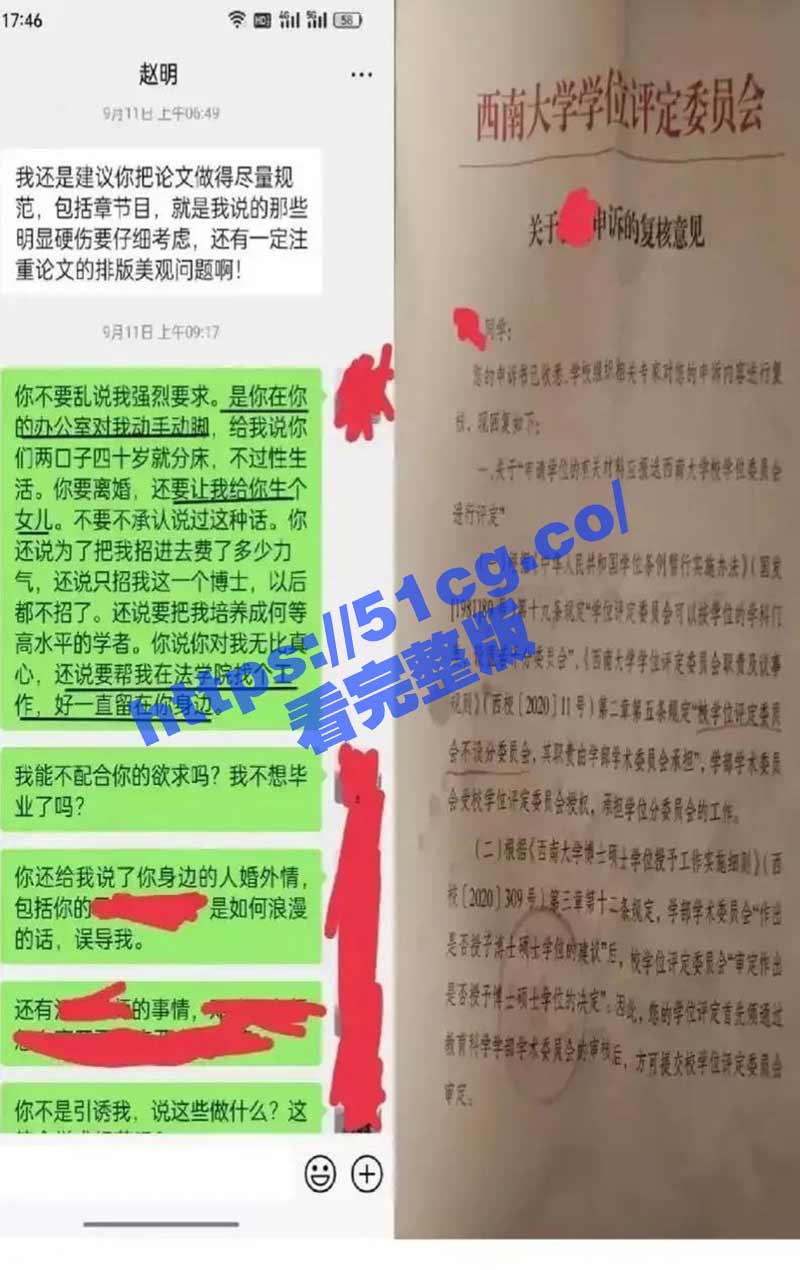 17:46
HD
4G
5G
58
赵明
9月11日 上午06:49
我还是建议你把论文做得尽量规
范，包括章节目，就是我说的那些
明显硬伤要仔细考虑，还有一定注
重论文的排版美观问题啊！
9月11日 上午09:17
你不要乱说我强烈要求。是你在你
的办公室对我动手动脚，给我说你
们两口子四十岁就分床，不过性生
活。你要离婚，还要让我给你生个
女儿。不要不承认说过这种话。你
还说为了把我招进去费了多少力
气，还说只招我这一个博士，以后
都不招了。还说要把我培养成何等
高水平的学者。你说你对我无比真
心，还说要帮我在法学院找个工
作，好一直留在你身边。
我能不配合你的欲求吗？我不想毕
业了吗？
你还给我说了你身边的人婚外情，
包括你的 是如何浪漫
的话，误导我。
还有 的事情，
你不是引诱我，说这些做什么？这
西南大学学位评定委员会
关于 申诉的复核意见
同学：
您的申诉书已收悉，学校组织相关专家对您的申诉内容进行复
核，现回复如下：
一、关于“申请学位的有关材料应报送西南大学校学位委员会
进行评定”
根据《中华人民共和国学位条例暂行实施办法》（国发
[1981]89号）第十九条规定“学位评定委员会可以按学位的学科门
类，设置若干分委员会”，《西南大学学位评定委员会职责及议事
规则》（西校〔2020〕11号）第二章第五条规定“校学位评定委员
会不设分委员会，其职责由学部学术委员会承担”，学部学术委员
会受校学位评定委员会授权，承担学位分委员会的工作。
（二）根据《西南大学博士硕士学位授予工作实施细则》（西
校〔2020〕309号）第三章第十二条规定，学部学术委员会“作出
是否授予博士硕士学位的建议”后，校学位评定委员会“审定作出
是否授予博士硕士学位的决定”。因此，您的学位评定首先须通过
教育科学学部学术委员会的审核后，方可提交校学位评定委员会
审定。
https://51cg.co/
看完整版